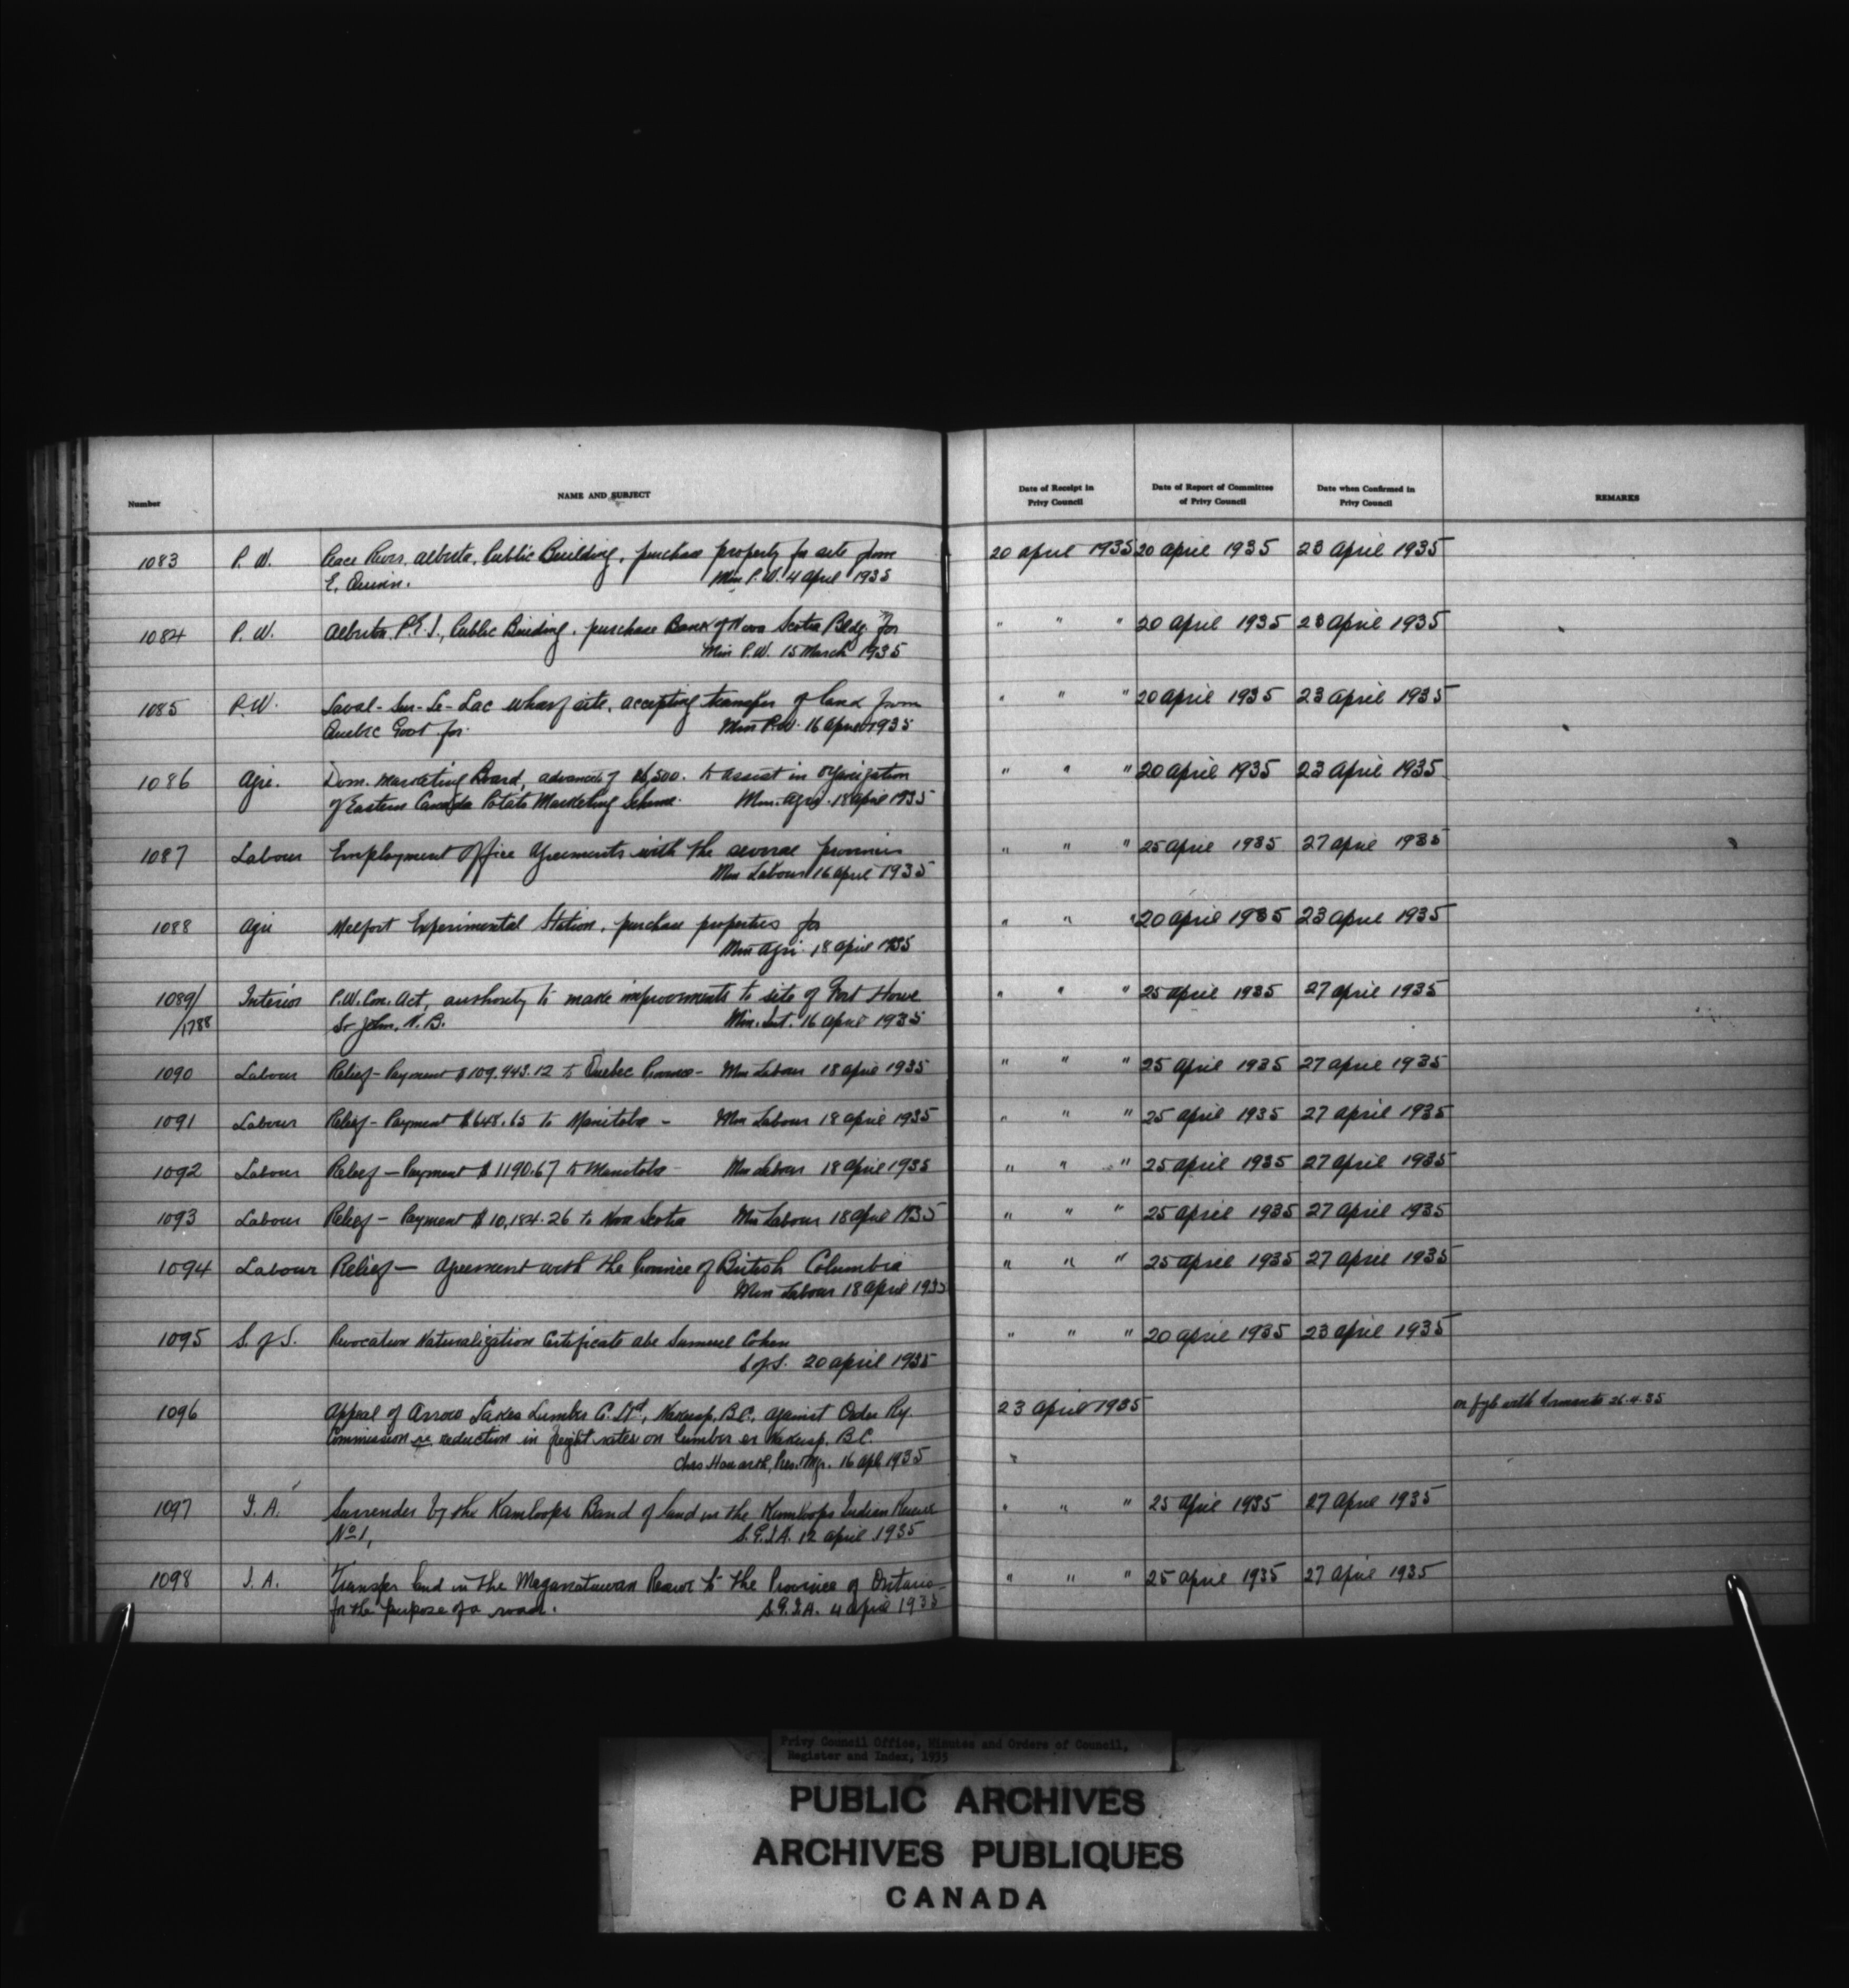 Number
NAME AND SUBJECT
Date of Receipt in Privy Council
Date of Report of Committee of Privy Council
Date when Confirmed in Privy Council
REMARKS
1083 P. W. Peace River, Alberta, Public Building, purchase property for site from 20 April 1935 20 April 1935 23 April 1935
E. Quinn. Min P.W. 4 April 1935
1084 P. W. Alberton, P.E.I., Public Building, purchase Bank of Nova Scotia Bldg for " " " 20 April 1935 23 April 1935
Min P.W. 15 March 1935
1085 P.W. Laval-Sur-Le-Lac wharf site, accepting transfer of land from " " " 20 April 1935 23 April 1935
Quebec Govt for. Min P.W. 16 April 1935
1086 Agri. Dom. Marketing Board, advance of to assist in organization " " " 20 April 1935 23 April 1935
of Eastern Canada Potato Marketing Scheme. Min. Agri. 18 April 1935
1087 Labour Employment Office Agreements with the several provinces " " " 25 April 1935 27 April 1935
Min Labour 16 April 1935
1088 Agri Melfort Experimental Station, purchase properties for " " " 20 April 1935 23 April 1935
Min Agri 18 April 1935
1089/ Interior P.W. Con. Act, authority to make improvements to site of Fort Howe " " " 25 April 1935 27 April 1935
/1788 St John, N.B. Min. Int. 16 April 1935
1090 Labour Relief - Payment $109,943.12 to Quebec Province - Min Labour 18 April 1935 " " " 25 April 1935 27 April 1935
1091 Labour Relief - Payment $648.65 to Manitoba - Min Labour 18 April 1935 " " " 25 April 1935 27 April 1935
1092 Labour Relief - Payment $1190.67 to Manitoba - Min Labour 18 April 1935 " " " 25 April 1935 27 April 1935
1093 Labour Relief - Payment $10,184.26 to Nova Scotia Min Labour 18 April 1935 " " " 25 April 1935 27 April 1935
1094 Labour Relief - Agreement with the Province of British Columbia " " " 25 April 1935 27 April 1935
Min Labour 18 April 1935
1095 S. of S. Revocation Naturalization Certificate abe Samuel Cohen " " " 20 April 1935 23 April 1935
S of S. 20 April 1935
1096 Appeal of Arrow Lakes Lumber C. Ltd, Nakusp, B.C., against Order Ry. 23 April 1935 26.4.35
Commission re reduction in freight rates on lumber ex Nakusp, B.C.
Chas Haworth, Pres. Mgr. 16 Apl 1935
1097 I. A. Surrender by the Kamloops Band of land in the Kamloops Indian Reserve " " " 25 April 1935 27 April 1935
No 1, S.G.I.A. 12 April 1935
1098 I. A. Transfer land in the Maganatawan Reserve to the Province of Ontario " " " 25 April 1935 27 April 1935
for the purpose of a road. S.G.I.A. 4 April 1935
Privy Council Office, Minutes and Orders of Council,
Register and Index, 1935
PUBLIC ARCHIVES
ARCHIVES PUBLIQUES
CANADA